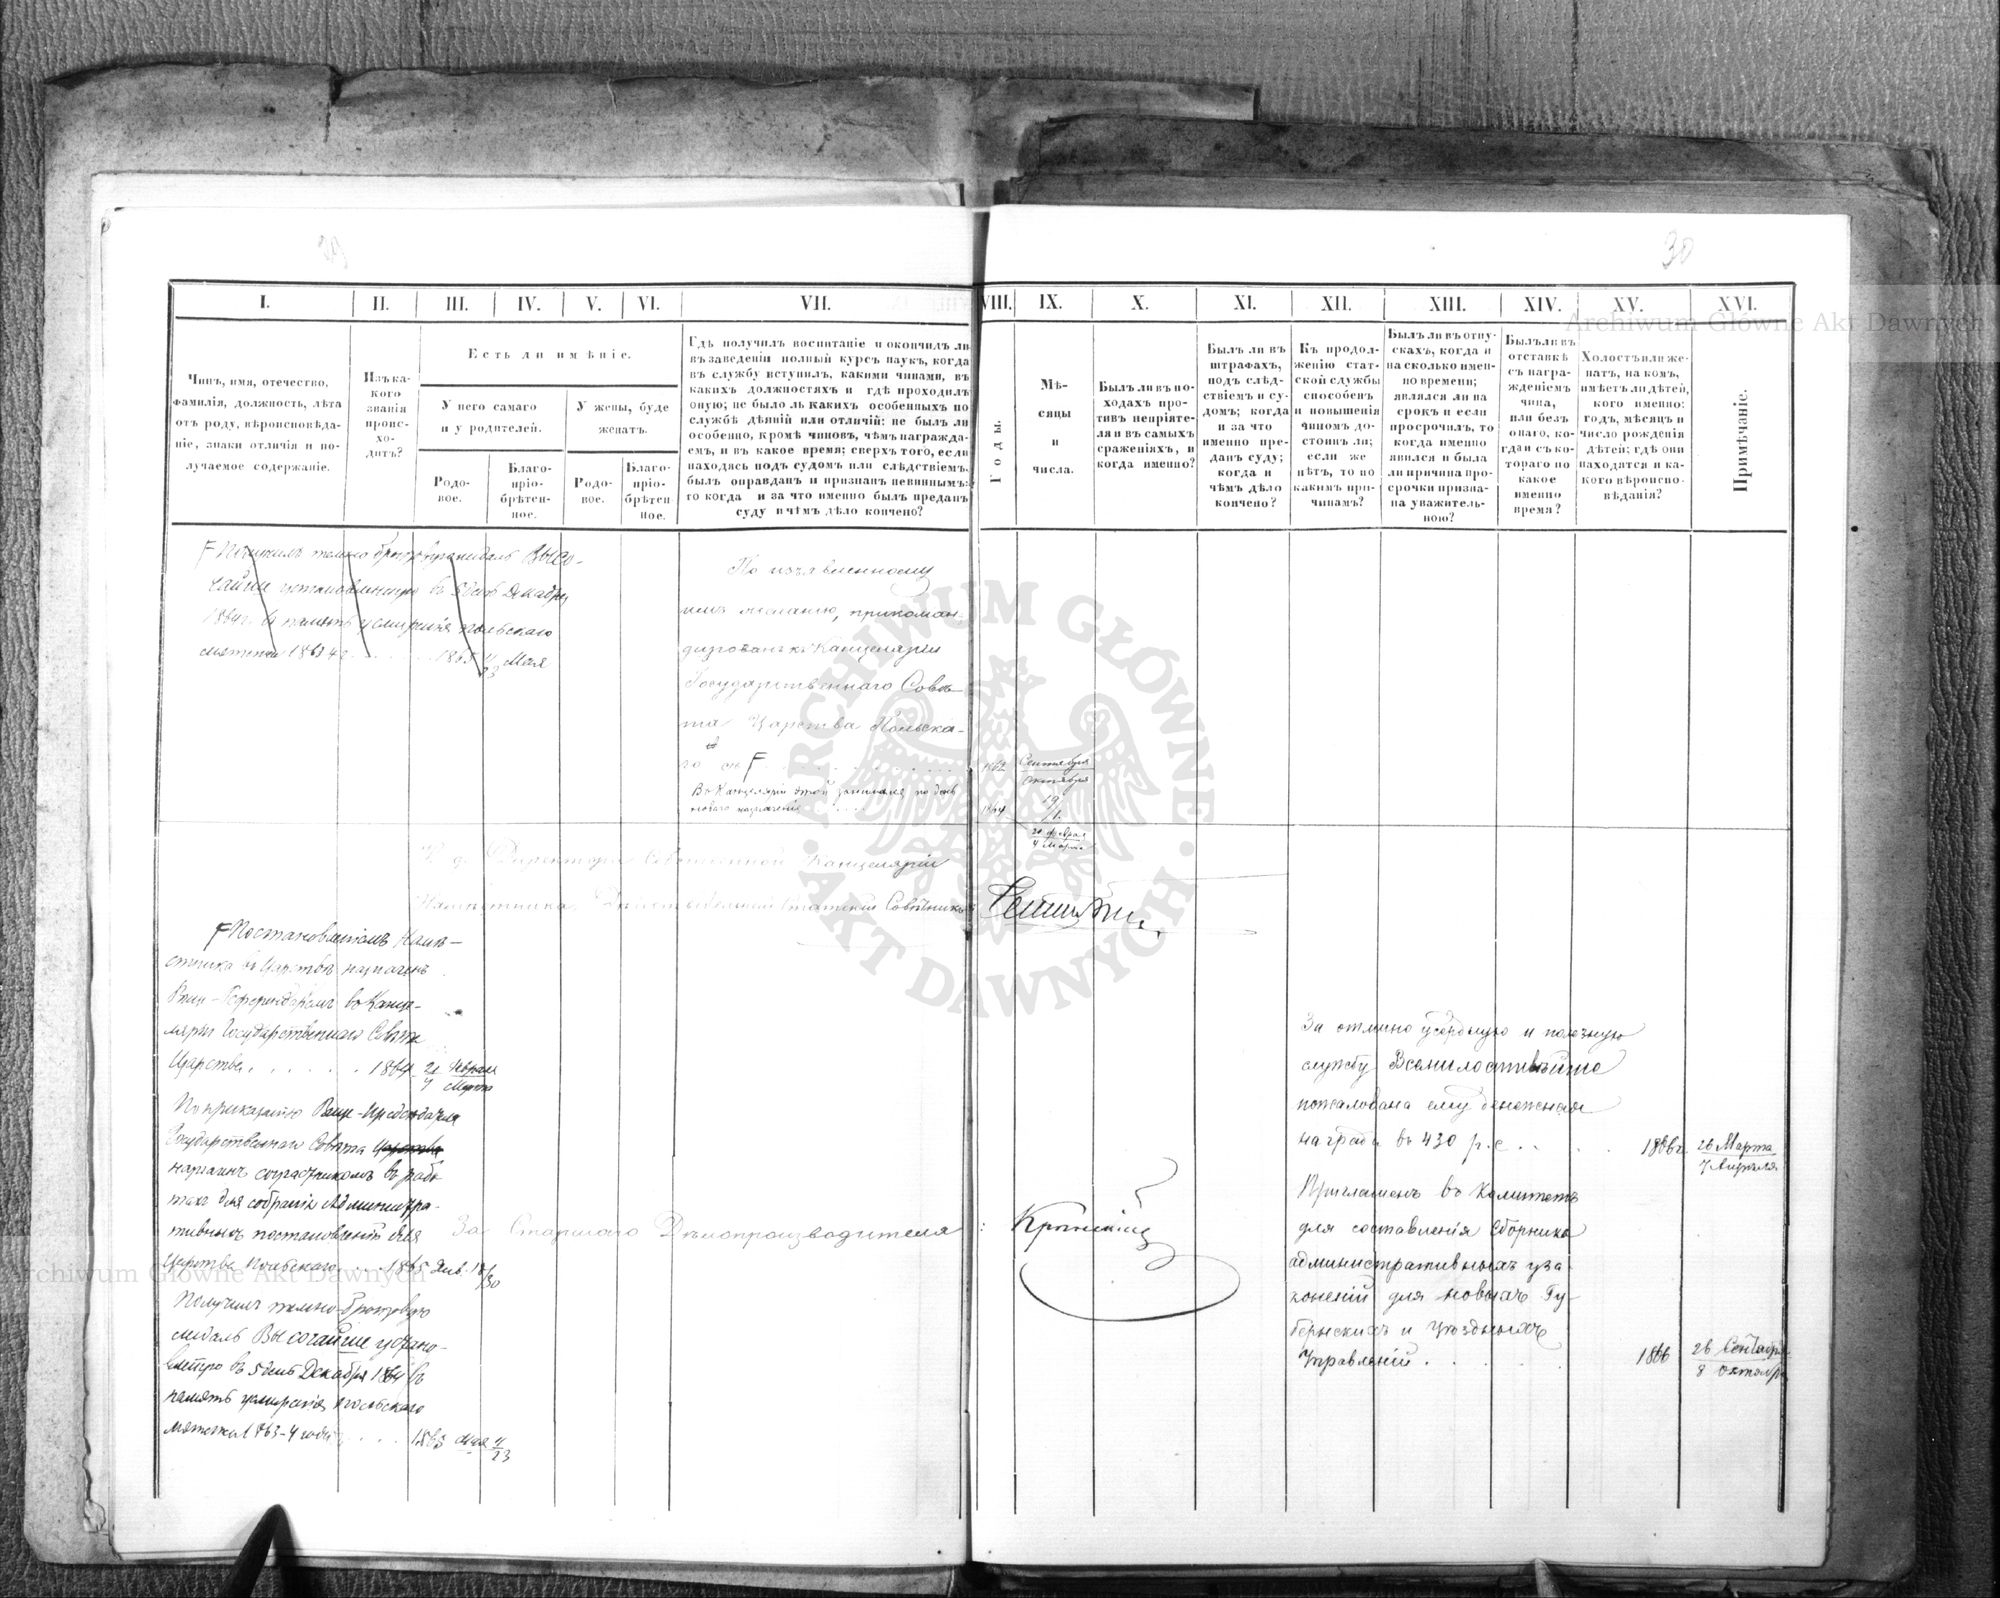 29
30
I.
II.
III.
IV.
V.
VI.
VII.
VIII.
IX.
X.
XI.
XII.
XIII.
XIV.
XV.
XVI.
Чинъ, имя, отечество,
фамилія, должность, лѣта
отъ роду, вѣроисповѣда-
ніе, знаки отличія и по-
лучаемое содержаніе.
Изъ ка-
кого
званія
проис-
хо-
дитъ?
Есть ли имѣніе.
У него самаго
и у родителей.
У жены, буде
женатъ.
Родо-
вое.
Благо-
пріо-
брѣтен-
ное.
Родо-
вое.
Благо-
пріо-
брѣтен-
ное.
Гдѣ получилъ воспитаніе и окончилъ ли
въ заведеніи полный курсъ наукъ, когда
въ службу вступилъ, какими чинами, въ
какихъ должностяхъ и гдѣ проходилъ
оную; не было ль какихъ особенныхъ по
службѣ дѣяній или отличій; не былъ ли
особенно, кромѣ чиновъ, чѣмъ награжда-
емъ, и въ какое время; сверхъ того, если
находясь подъ судомъ или слѣдствіемъ,
былъ оправданъ и признанъ невиннымъ:
то когда и за что именно былъ преданъ
суду и чѣмъ дѣло кончено?
Годы.
Мѣ-
сяцы
и
числа.
Былъ ли въ по-
ходахъ про-
тивъ непріяте-
ля и въ самыхъ
сраженіяхъ, и
когда именно?
Былъ ли въ
штрафахъ,
подъ слѣд-
ствіемъ и су-
домъ; когда
и за что
именно пре-
данъ суду;
когда и
чѣмъ дѣло
кончено?
Къ продол-
женію стат-
ской службы
способенъ
и повышенія
чиномъ до-
стоинъ ли;
если же
нѣтъ, то по
какимъ при-
чинамъ?
Былъ ли въ отпу-
скахъ, когда и
на сколько имен-
но времени;
являлся ли на
срокъ и если
просрочилъ, то
когда именно
явился и была
ли причина про-
срочки призна-
на уважитель-
ною?
Былъ ли въ
отставкѣ
съ награ-
жденіемъ
чина,
или безъ
онаго, ко-
гда и съ ко-
тораго по
какое
именно
время?
Холостъ или же-
натъ, на комъ,
имѣетъ ли дѣтей,
кого именно:
годъ, мѣсяцъ и
число рожденія
дѣтей; гдѣ они
находятся и ка-
кого вѣроиспо-
вѣданія?
Примѣчаніе.
Получилъ темно бронзовую медаль Высо-
чайше установленную въ 5 день Декабря
1864 г. въ память усмиренія польскаго
мятежа 1863-4 г. . . . . 1865 11/23 Мая
По изъявленному
имъ желанію, прикоман-
дированъ къ Канцеляріи
Государственнаго Совѣ-
та Царства Польска-
го . . . . . 1862 Сентября
Октября
19/1
Въ Канцеляріи этой занимался по день
новаго назначенія . . . . 1864
21 Февраля
4 Марта
И. д. Директора Собственной Канцеляріи
Намѣстника, Дѣйствительный Статскій Совѣтникъ
Постановленіемъ Намѣ-
стника въ Царствѣ назначенъ
Вице-Референдаремъ въ Канце-
ляріи Государственнаго Совѣта
Царства. . . . . . 1864 21 Февраля
4 Марта
По приказанію Вице-Предсѣдателя
Государственнаго Совѣта Царства
назначенъ сотрудникомъ въ рабо-
тахъ для собранія Административ-
тивныхъ постановленій для
Царства Польскаго . . . 1865 Янв. 18/30
За Старшаго Дѣлопроизводителя:
Получилъ темно-бронзовую
медаль Высочайше устано-
вленную въ 5 день Декабря 1864 въ
память усмиренія польскаго
мятежа 1863-4 годовъ . . . 1865 Мая 11/23
За отлично усердную и полезную
службу Всемилостивѣйше
пожалована ему денежная
награда въ 430 р. с . . . . 1866 г. 26 Марта
7 Апрѣля
Приглашенъ въ Комитетъ
для составленія Сборника
административныхъ уза-
коненій для новыхъ Гу-
бернскихъ и Уѣздныхъ
Управленій . . . . . 1866 26 Сентября
8 Октября
ARCHIWUM GŁÓWNE AKT DAWNYCH
Archiwum Główne Akt Dawnych
Archiwum Główne Akt Dawnych